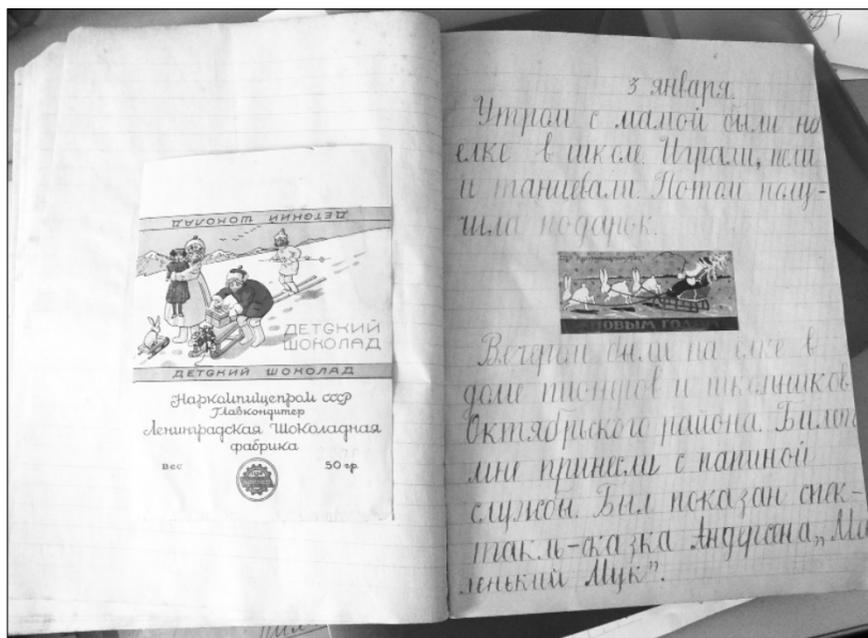 ДЕТСКИЙ ШОКОЛАД
ДЕТСКИЙ
ШОКОЛАД
ДЕТСКИЙ ШОКОЛАД
Наркомпищепром СССР
Главкондитер
Ленинградская Шоколадная
фабрика
Вес 50 гр.
3 января.
Утром с мамой были на
елке в школе. Играли, пели
и танцевали. Потом полу-
чила подарок.
НОВЫМ ГОДОМ
Вечером были на елке в
доме пионеров и школьников
Октябрьского района. Билет
мне принесли с папиной
службы. Был показан спек-
такль-сказка Андерсана „Ма
ленький Мук".